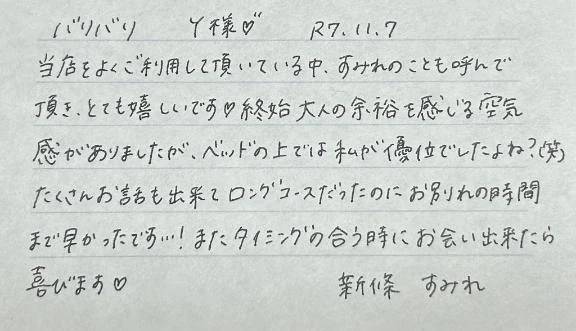 バリバリ Y様♡ R7.11.7
当店をよくご利用して頂いている中、すみれのことも呼んで
頂き、とても嬉しいです♡終始 大人の余裕を感じる空気
感がありましたが、ベッドの上では私が優位でしたよね?(笑)
たくさんお話も出来てロングコースだったのにお別れの時間
まで早かったです…!またタイミングの合う時にお会い出来たら
喜びます♡ 新條 すみれ